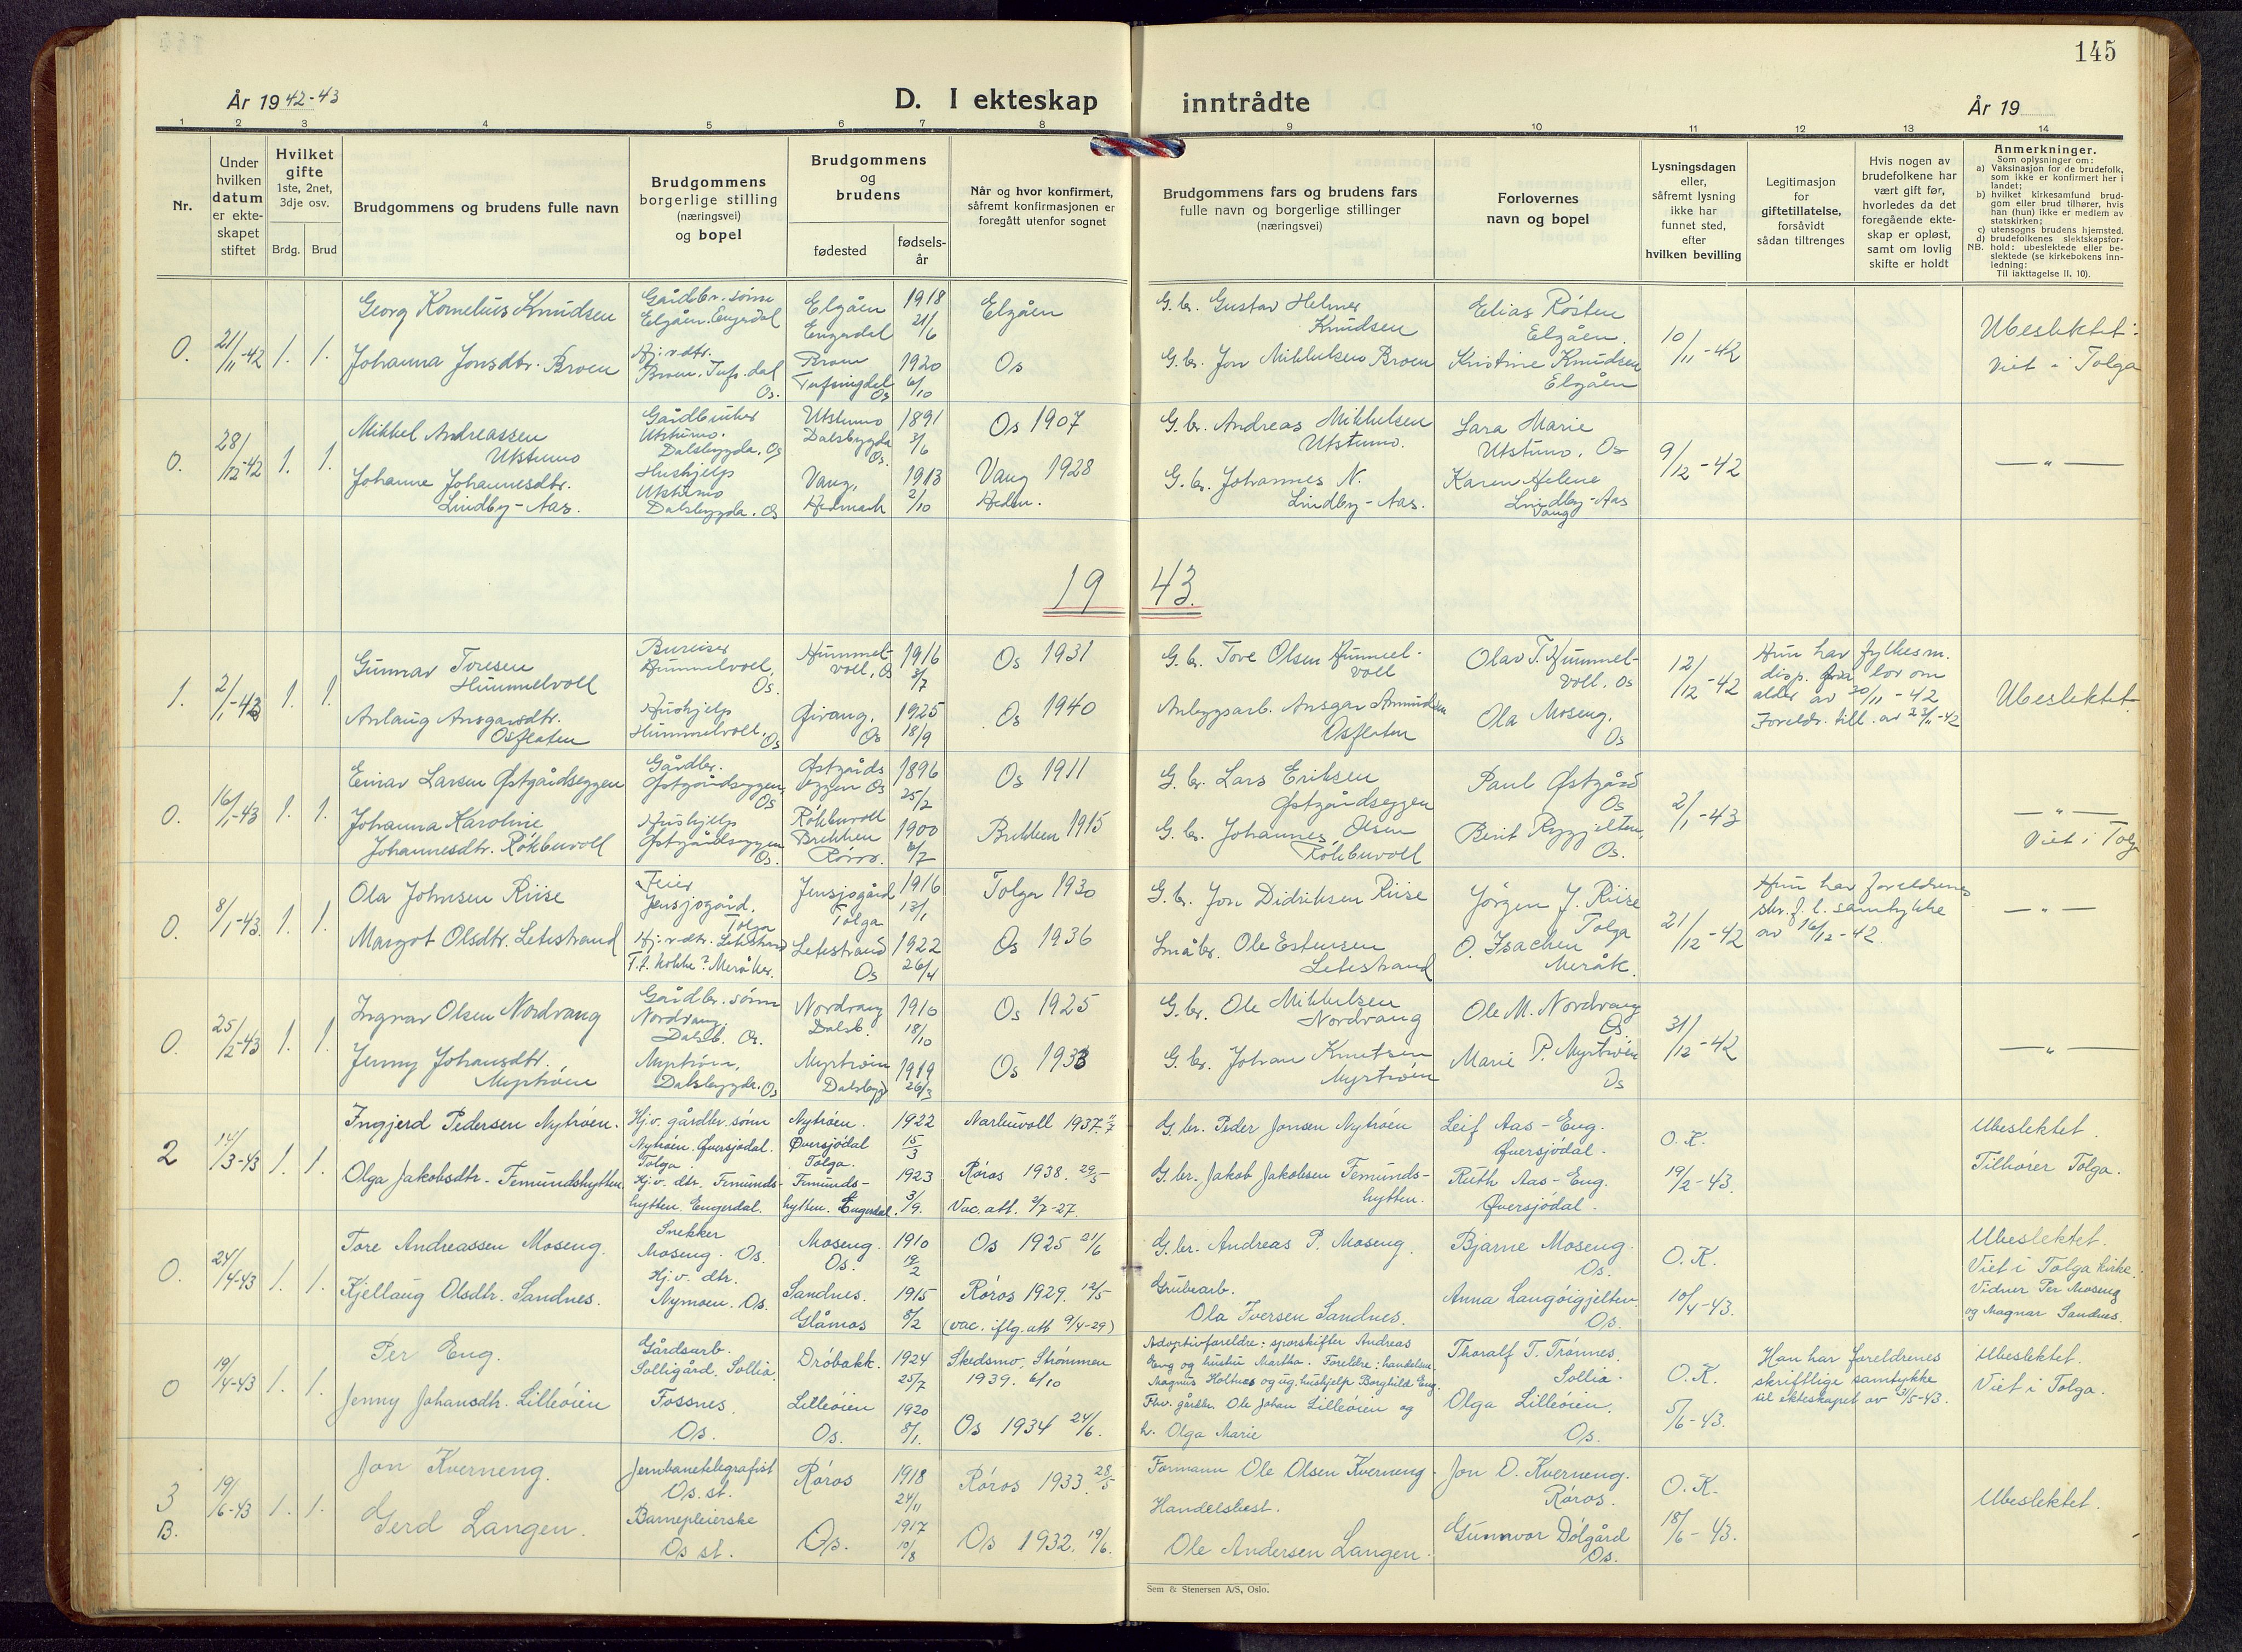 145
År 19 42-43
D. I ekteskap inntrådte
År 19
1 2 3 4 5 6 7 8 9 10 11 12 13 14
Nr.
Under
hvilken
datum
er ekte-
skapet
stiftet
Hvilket
gifte
1ste, 2net,
3dje osv.
Brdg. Brud
Brudgommens og brudens fulle navn
Brudgommens
borgerlige stilling
(næringsvei)
og bopel
Brudgommens
og
brudens
fødested
fødsels-
år
Når og hvor konfirmert,
såfremt konfirmasjonen er
foregått utenfor sognet
Brudgommens fars og brudens fars
fulle navn og borgerlige stillinger
(næringsvei)
Forlovernes
navn og bopel
Lysningsdagen
eller,
såfremt lysning
ikke har
funnet sted,
efter
hvilken bevilling
Legitimasjon
for
giftetillatelse,
forsåvidt
sådan tiltrenges
Hvis nogen av
brudefolkene har
vært gift før,
hvorledes da det
foregående ekte-
skap er opløst,
samt om lovlig
skifte er holdt
Anmerkninger.
Som oplysninger om:
a) Vaksinasjon for de brudefolk,
som ikke er konfirmert her i
landet;
b) hvilket kirkesamfund brud-
gom eller brud tilhører, hvis
han (hun) ikke er medlem av
statskirken;
c) utensogns brudens hjemsted.
d) brudefolkenes slektskapsfor-
NB. hold: ubeslektede eller be-
slektede (se kirkebokens inn-
ledning:
Til iakttagelse II. 10).
0.
21/11-42
1. 1.
Georg Kornelius Knudsen
Gårdbr. sønn
Elgåen. Engerdal
Elgåen
Engerdal
1918
21/6
Elgåen
G.br. Gustav Helmer
Knudsen
Elias Røsten
Elgåen.
10/11-42
Ubeslektet:
Viet i Tolga
Johanna Jonsdtr. Broen
Hj.v. dtr.
Broen. Tufs.dal
Os.
Broen
Tufsingdal
Os
1920
6/10
Os
G.br. Jon Mikkelsen Broen
Kristine Knudsen
Elgåen
0.
28/12-42
1. 1.
Mikkel Andreassen
Utstumo
Gårdbruker
Utstumo.
Dalsbygda. Os
Utstumo
Dalsbygda
Os.
1891
3/6
Os 1907
G.br. Andreas Mikkelsen
Utstumo.
Lara Marie
Utstumo, Os
9/12-42
— " —
Johanne Johannesdtr.
Lindby-Aas.
Hushjelp
Utstumo
Dalsbygda. Os
Vang,
Hedmark
1913
2/10
Vang 1928
Hedm.
G.br. Johannes N.
Lindby-Aas.
Karen Helene
Lindby-Aas
Vang
19 43.
1.
2/1-43
1. 1.
Gunnar Toresen
Hummelvoll
Bureiser
Hummelvoll,
Os.
Hummel-
voll, Os
1916
3/7
Os 1931
G.br. Tore Olsen Hummel-
voll
Olav T. Hummel-
voll. Os
12/12-42
Hun har fylkesm.
disp. fra lov om
alder av 20/11-42
Foreldr. till. av 23/11-42
Ubeslektet.
Anlaug Ansgarsdtr.
Osflaten
Hushjelp
Hummelvoll,
Os
Os
1925
18/9
Os 1940
Anleggsarb. Ansgar Amundsen
Osflaten
Ola Moseng.
Os
0.
16/1-43
1. 1.
Einar Larsen Østgårdseggen
Gårdbr.
Østgårdseggen,
Os
Østgårds
eggen Os
1896
25/2
Os 1911
G.br. Lars Eriksen
Østgårdseggen
Paul Østgård
Os
2/1-43
— " —
Viet i Tolga
Johanna Karoline
Johannesdtr. Røkbuvoll
Hushjelp
Østgårdseggen
Os.
Røkbuvoll
Brekken
Røros.
1900
6/7
Brekken 1915
G.br. Johannes Olsen
Røkbuvoll
Berit Ryggjelten,
Os.
0.
8/1-43.
1. 1.
Ola Johnsen Riise
Feier
Jensjogård.
Tolga
Jensjogård
Tolga
1916
13/1
Tolga 1930
G.br. Jon Didriksen Riise
Jørgen J. Riise
Tolga
21/12-42
Hun har foreldrenes
skr. f. l. samtykke
av 16/12-42.
— " —
Margot Olsdtr. Letestrand
Hj.v. dtr. Letestrand
T.f. kokke? Meråker.
Letestrand
Os
1922
26/4
Os 1936
Småbr. Ole Estensen
Letestrand
O. Isachen
Meråk.
0.
25/2-43
1. 1.
Ingvar Olsen Nordvang
Gårdbr. sønn
Nordvang,
Dalsb. Os.
Nordvang
Dalsb.
1910
18/10
Os 1925
G.br. Ole Mikkelsen
Nordvang
Ole M. Nordvang
Os
31/12-42
— " —
Jenny Johansdtr.
Myrtrøen
Myrtrøen,
Dalsbygda. Os
Myrtrøen
Dalsbygd
1919
26/3
Os 1933
G.br. Johan Knutsen
Myrtrøen
Marie P. Myrtrøen
Os
2
14/3-43
1. 1.
Ingjerd Pedersen Nytrøen.
Hj.v. gårdbr. sønn
Nytrøen. Øversjødal.
Tolga.
Nytrøen.
Øversjødal
Tolga.
1922
15/3
Narbuvoll 1937.
G.br. Peder Jonsen Nytrøen
Leif Aas-Eng.
Øversjødal.
O.K.
19/2-43.
Ubeslektet.
Tilhører Tolga.
Olga Jakobsdtr. Femundshytten
Hj.v. dtr. Femunds-
hytten. Engerdal.
Femunds-
hytten. Engerdal.
1923
3/9.
Røros 1938. 29/5
Vac. att. 9/7-27.
G.br. Jakob Jakobsen Femunds-
hytten.
Ruth Aas-Eng.
Øversjødal.
0.
24/4-43
1. 1.
Tore Andreassen Moseng.
Snekker
Moseng. Os.
Moseng.
Os.
1910
19/2
Os 1925 21/6
G.br. Andreas P. Moseng.
Bjarne Moseng.
Os.
O.K.
10/4-43.
Ubeslektet.
Viet i Tolga kirke.
Vidner Per Moseng
og Magnar Sandnes.
Kjellaug Olsdtr. Sandnes.
Hj.v. dtr.
Nymoen. Os.
Sandnes.
Glåmos
1915
8/2
Røros 1929. 12/5
(vac. iflg. att 9/4-29)
Grubearb.
Ola Iversen Sandnes.
Anna Langøigjelten
Os.
0
19/4-43
1. 1.
Per Eng.
Gårdsarb.
Solligård. Sollia.
Drøbakk.
1924
25/7
Skedsmo, Strømmen
1939. 6/10
Adoptivforeldre: sporskifter Andreas
Eng og hustru Martha. Foreldre: handelsm.
Magnus Holtnes og ug. hushjelp Borghild Eng.
Thoralf T. Trønnes.
Sollia.
O.K.
5/6-43.
Han har foreldrenes
skriftlige samtykke
til ekteskapet av 31/5-43.
Ubeslektet.
Viet i Tolga.
Jenny Johansdtr. Lilleøien
Fossnes.
Os.
Lilleøien
Os.
1920
8/1.
Os 1934 24/6.
Fhv. gårdbr. Ole Johan Lilleøien og
h. Olga Marie
Olga Lilleøien.
Os.
3
B.
19/6-43
1. 1.
Jon Kverneng.
Jernbanetelegrafist
Os. st.
Røros
1918
24/11
Røros 1933. 28/5
Formann Ole Olsen Kverneng.
Jon O. Kverneng.
Røros.
O.K.
18/6-43.
Ubeslektet.
Gerd Langen.
Barnepleierske
Os st.
Os.
1917
10/8
Os 1932. 19/6.
Handelsbest.
Ole Andersen Langen.
Gunnvor Dølgård
Os.
Sem & Stenersen A/S, Oslo.